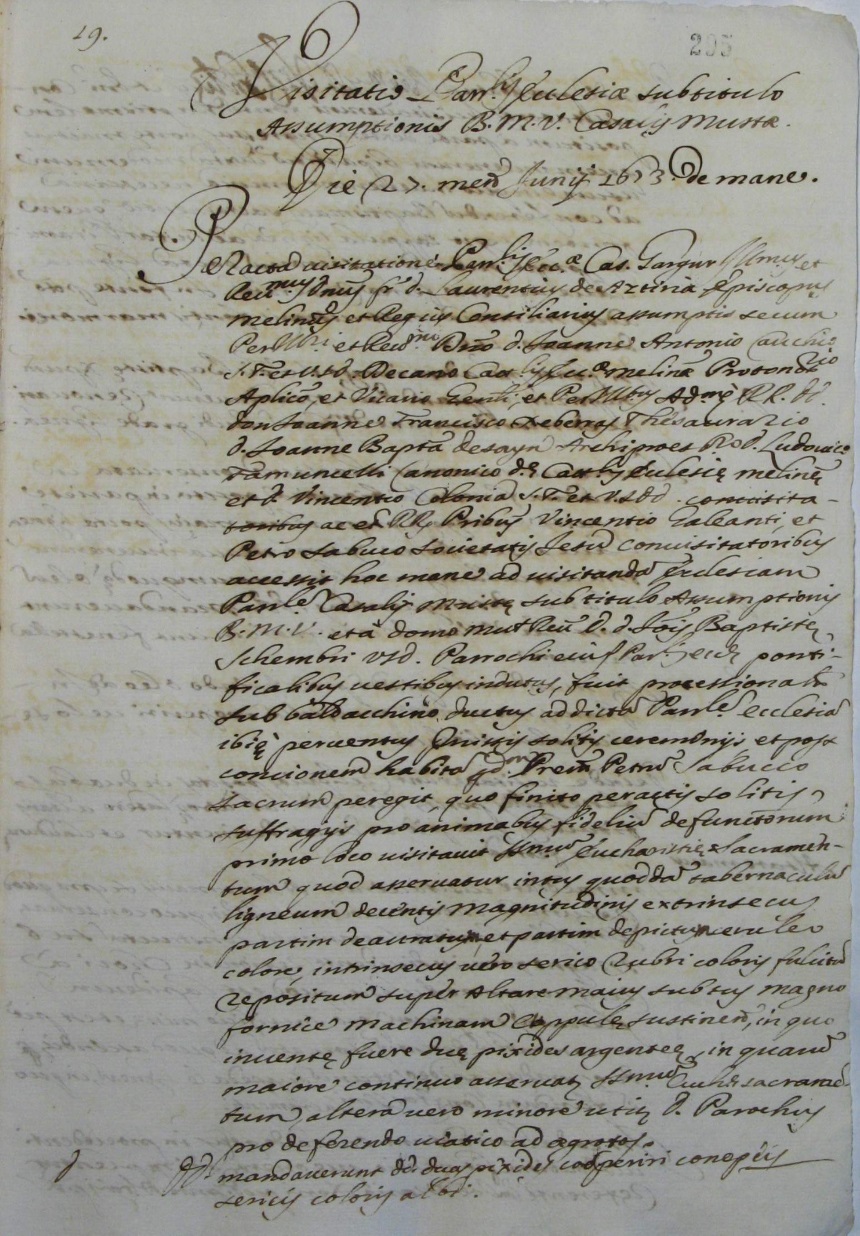 19.
295
Visitatio Par.lis Ecclesiæ sub titulo
Assumptionis B.M.V. Casalis Mustæ.
Die 27. men Junij 1673. de mane.
Peracta visitatione Par.lis Ecc.æ Cas. Gargur Ill.mus et
Reu.mus Dnus fr. d. Laurentius de Aztiria Episcopus
melinus et Regius Consiliarius assumptis secum
Per Ill.ri et Reu.mo Dno d. Joanne Antonio Cauchi
S.T. et V.I.D. Decano Cath.lis Ecc.æ melinæ Protonorio
Aplico, et Vicario Gen.li, et Per Ill.bus Adm. RR. dd.
don Joanne Francisco Deberras Thesaurario
d. Joanne Bapta desayn Archipræs R.do d. Ludouico
Famuncelli Canonico d.æ Cath.lis Ecclesię melinę
et d. Vincentio Colonia S.T. et V.I.D. conuisita-
toribus ac et RR. Pribus Vincentio Galeanti, et
Petro Sabuco Societatis Jesu conuisitatoribus
accessit hoc mane ad uisitandā Ecclesiam
Par.lē Casalis Mustę sub titulo Assumptionis
B.M.V. et a domo mult. Reu. D. d. Jois Baptistę
Schembri V.I.D. Parrochi eius Par.lis eccę ponti-
ficalibus uestibus indutus, fuit processionalr
sub baldacchino ductus ad dictā Par.lē ecclesiā
ibiq peruentus Omissis solitis ceremonijs et post
concionem habitā p dm Prem Petrū Sabucco
sacrum peregit, quo finito peractis solitis
suffragijs pro animabus fideliū defunctorum
primo loco uisitauit SSmū Eucharistię Sacramen-
tum quod asseruatur intus quoddā tabernaculū
ligneum decentis magnitudinis extrinsecus
partim deauratum, et partim depictum ceruleo
colore, intrinsecus uero serico rubri coloris fulcitū
repositum super Altare maius subtus magno
fornice machinam Cuppulę sustinen, in quo
inuentę fuere duę pixides argenteę, in quarū
maiore continuo asseruatr SSmū Euchæ sacramē-
tum, altera uero minore utitr D. Parochus
pro deferendo uiatico ad ægrotos.
DD. mandauerunt dd. duas pixides cooperiri conopęis
sericis coloris albi.